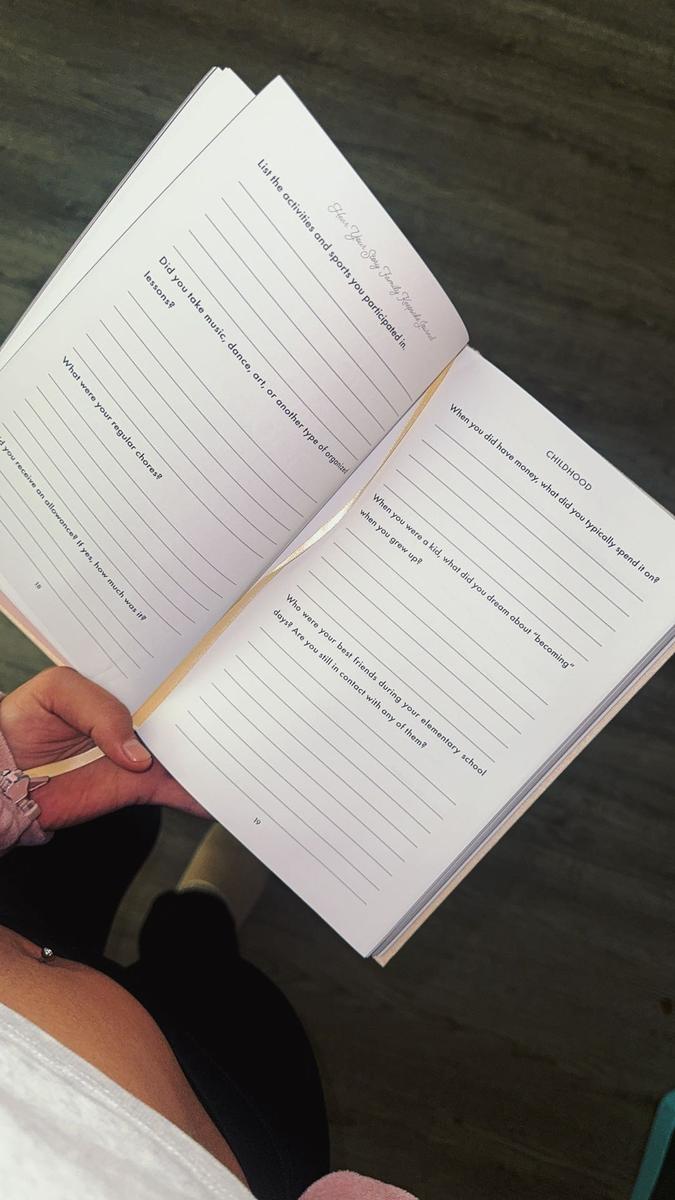 Hear Your Story Family Keepsake Journal
List the activities and sports you participated in.
Did you take music, dance, art, or another type of organized
lessons?
What were your regular chores?
you receive an allowance? If yes, how much was it?
18
CHILDHOOD
When you did have money, what did you typically spend it on?
When you were a kid, what did you dream about "becoming"
when you grew up?
Who were your best friends during your elementary school
days? Are you still in contact with any of them?
19